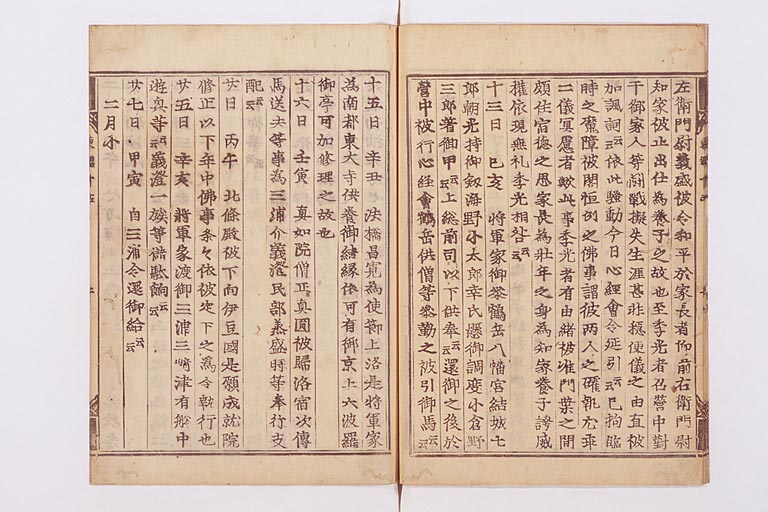 左衛門尉義盛被令和平於家長者仰前右衛門尉
知家被止出仕為養子之故也至季光者召營中對
于御家人等鬪戰擬失生涯甚非穏便儀之由直被
加諷詞云云依此騒動今日心經會令延引云云已拘臨
時之魔障被閣恒例之佛事謂彼両人之確執尤乖
二儀冥慮者歟此事季光者有由緒被准門葉之間
頗住宿徳之思家長為壮年之身為知家養子誇威
權依現無礼季光相咎云云
十三日 己亥 將軍家御參鶴岳八幡宮結城七
郎朝光持御剱海野小太郎幸氏懸御調度小倉野
三郎着御甲云云上総前司以下供奉云云還御之後於
營中被行心經會鶴岳供僧等參勤之被引御馬云云
十五日 辛丑 法橋昌寛為使節上洛是將軍家
為南都東大寺供養御結縁依可有御京上六波羅
御亭可加修理之故也
十六日 壬寅 真如院僧正真圓被歸洛宿次傳
馬送夫等事為三浦介義澄民部丞盛時等奉行支
配云云
廿日 丙午 北條殿被下向伊豆國是願成就院
修正以下年中佛事条々依被定下之為令執行也
廿五日 辛亥 將軍家渡御三浦三崎津有船中
遊興等云云義澄一族等儲駄餉云云
廿七日 甲寅 自三浦令還御給云云
二月小